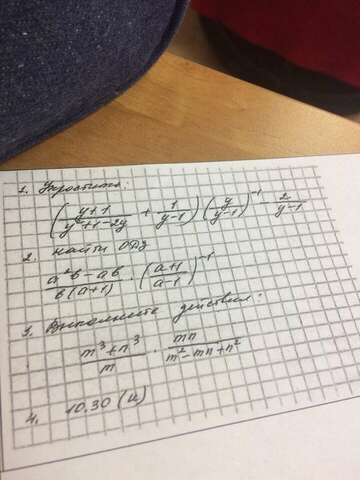 1. Упростить:
( y+1 / y²+1-2y + 1 / y-1 ) ( y / y-1 )⁻¹ - 2 / y-1
2. Найти ОДЗ
a²b-ab / b(a+1) · ( a+1 / a-1 )⁻¹
3. Выполните действия:
m³+n³ / m · mn / m²-mn+n²
4. 10.30 (и)